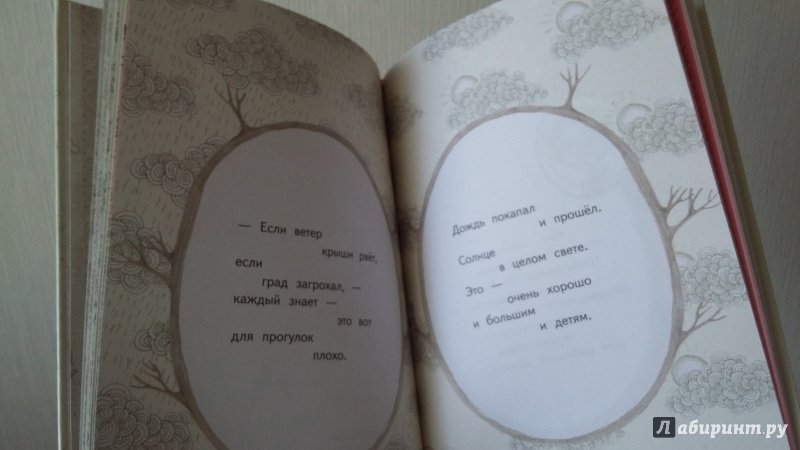 — Если ветер
крыши рвёт,
если
град загрохал, —
каждый знает —
это вот
для прогулок
плохо.
Дождь покапал
и прошёл.
Солнце
в целом свете.
Это —
очень хорошо
и большим
и детям.
Лабиринт.ру